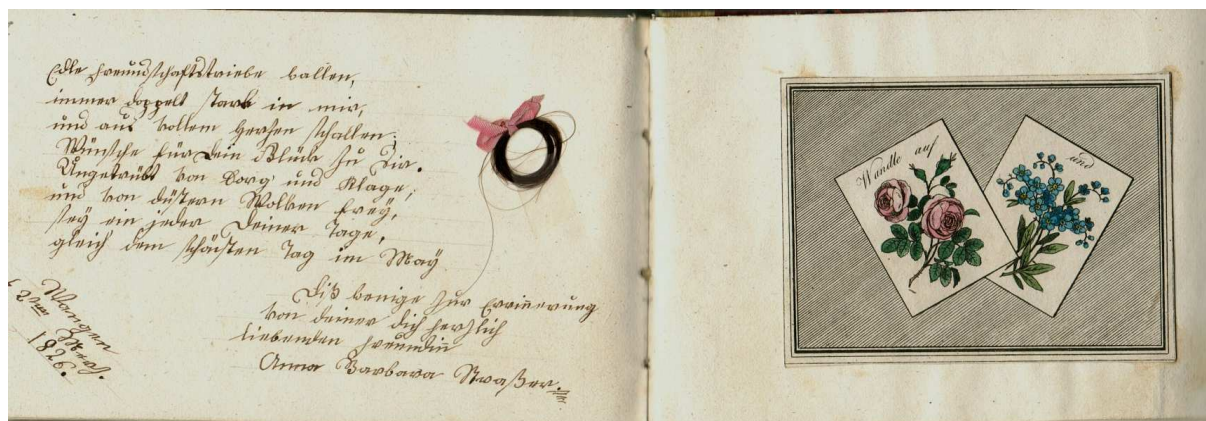 Edle Freundschaftstriebe wallen,
immer doppelt stark in mir,
und aus vollem Herzen schallen,
Wünsche für Dein Glück zu Dir.
Ungetrübt von Sorg' und Klage,
und von düstern Wolken frey,
sey ein jeder Deiner Tage,
gleich dem schönsten Tag im May
Diß wenige zur Errinerung
von deiner dich herzlich
liebenden Freundin
Anna Barbara Straßer.
Wangen
2ten
1826.
Wandle auf
und